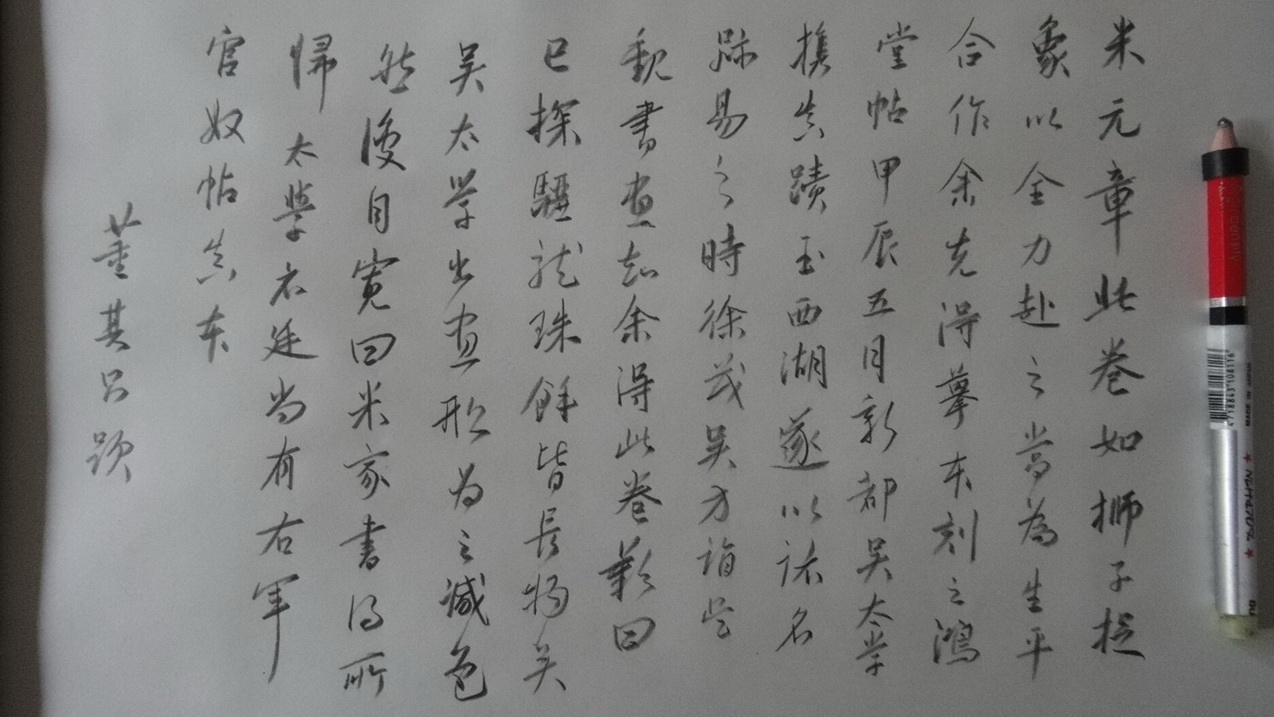 米元章此卷如獅子捉
象以全力赴之當為生平
合作余先得摹本刻之鴻
堂帖甲辰五月新都吳太学
携真蹟至西湖遂以諸名
跡易之時徐茂吳方詣吳
觀書画知余得此卷歎曰
已探驪龍珠餘皆長物矣
吳太学书画船为之減色
然後自寬曰米家書得所
歸太學名廷尚有右軍
官奴帖真本
董其昌題